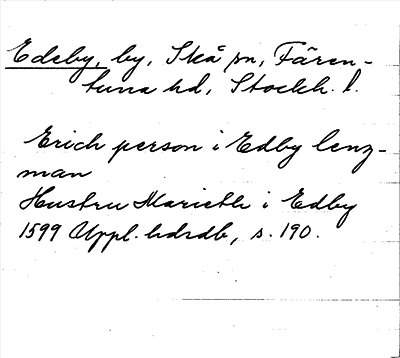 Edeby, by, Skå sn, Fären-
tuna hd, Stockh. l.
Erich person i Edby lenz-
man
Hustru Marieth i Edby
1599 Uppl. hdrdb, s. 190.